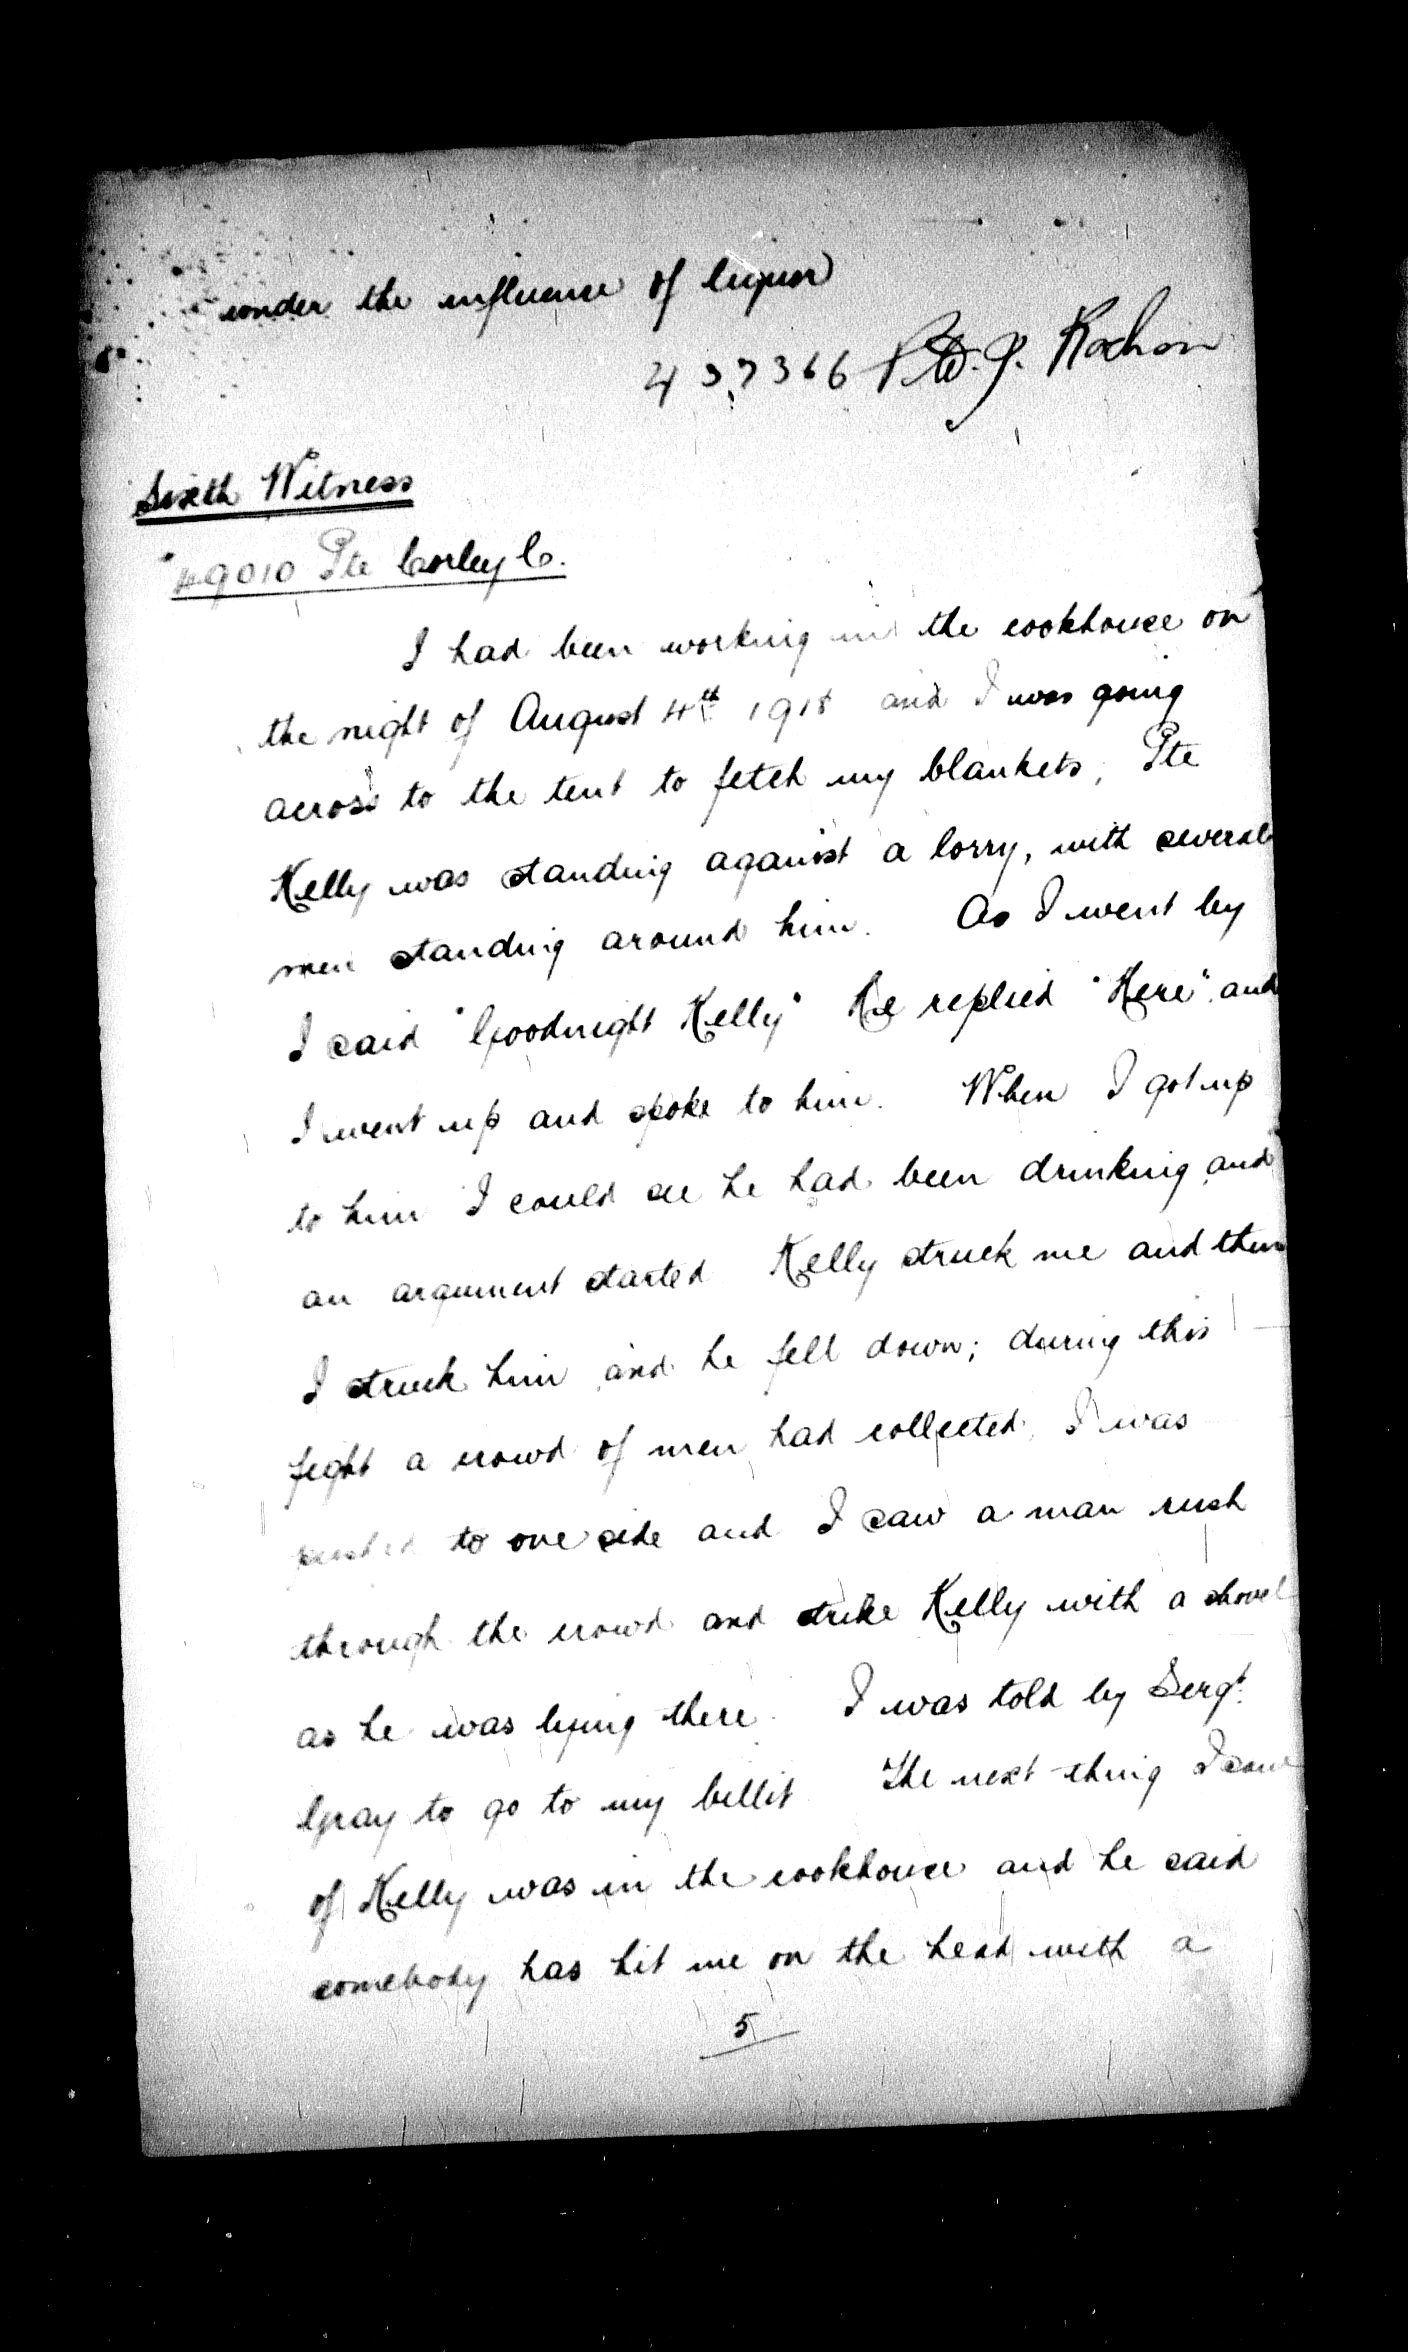 under the influence of liquor
437366 Pte. J. Rochon
Sixth Witness
49010 Pte Corley C.
I had been working in the cookhouse on
the night of August 4th 1918 and I was going
across to the tent to fetch my blankets, Pte
Kelly was standing against a lorry, with several
men standing around him. As I went by
I said "Goodnight Kelly" He replied "Here" and
I went up and spoke to him. When I got up
to him I could see he had been drinking and
an argument started Kelly struck me and then
I struck him and he fell down; during this
fight a crowd of men had collected, I was
pushed to one side and I saw a man rush
through the crowd and strike Kelly with a shovel
as he was lying there. I was told by Sergt.
Gray to go to my billit The next thing I saw
of Kelly was in the cookhouse and he said
somebody has hit me on the head with a
5